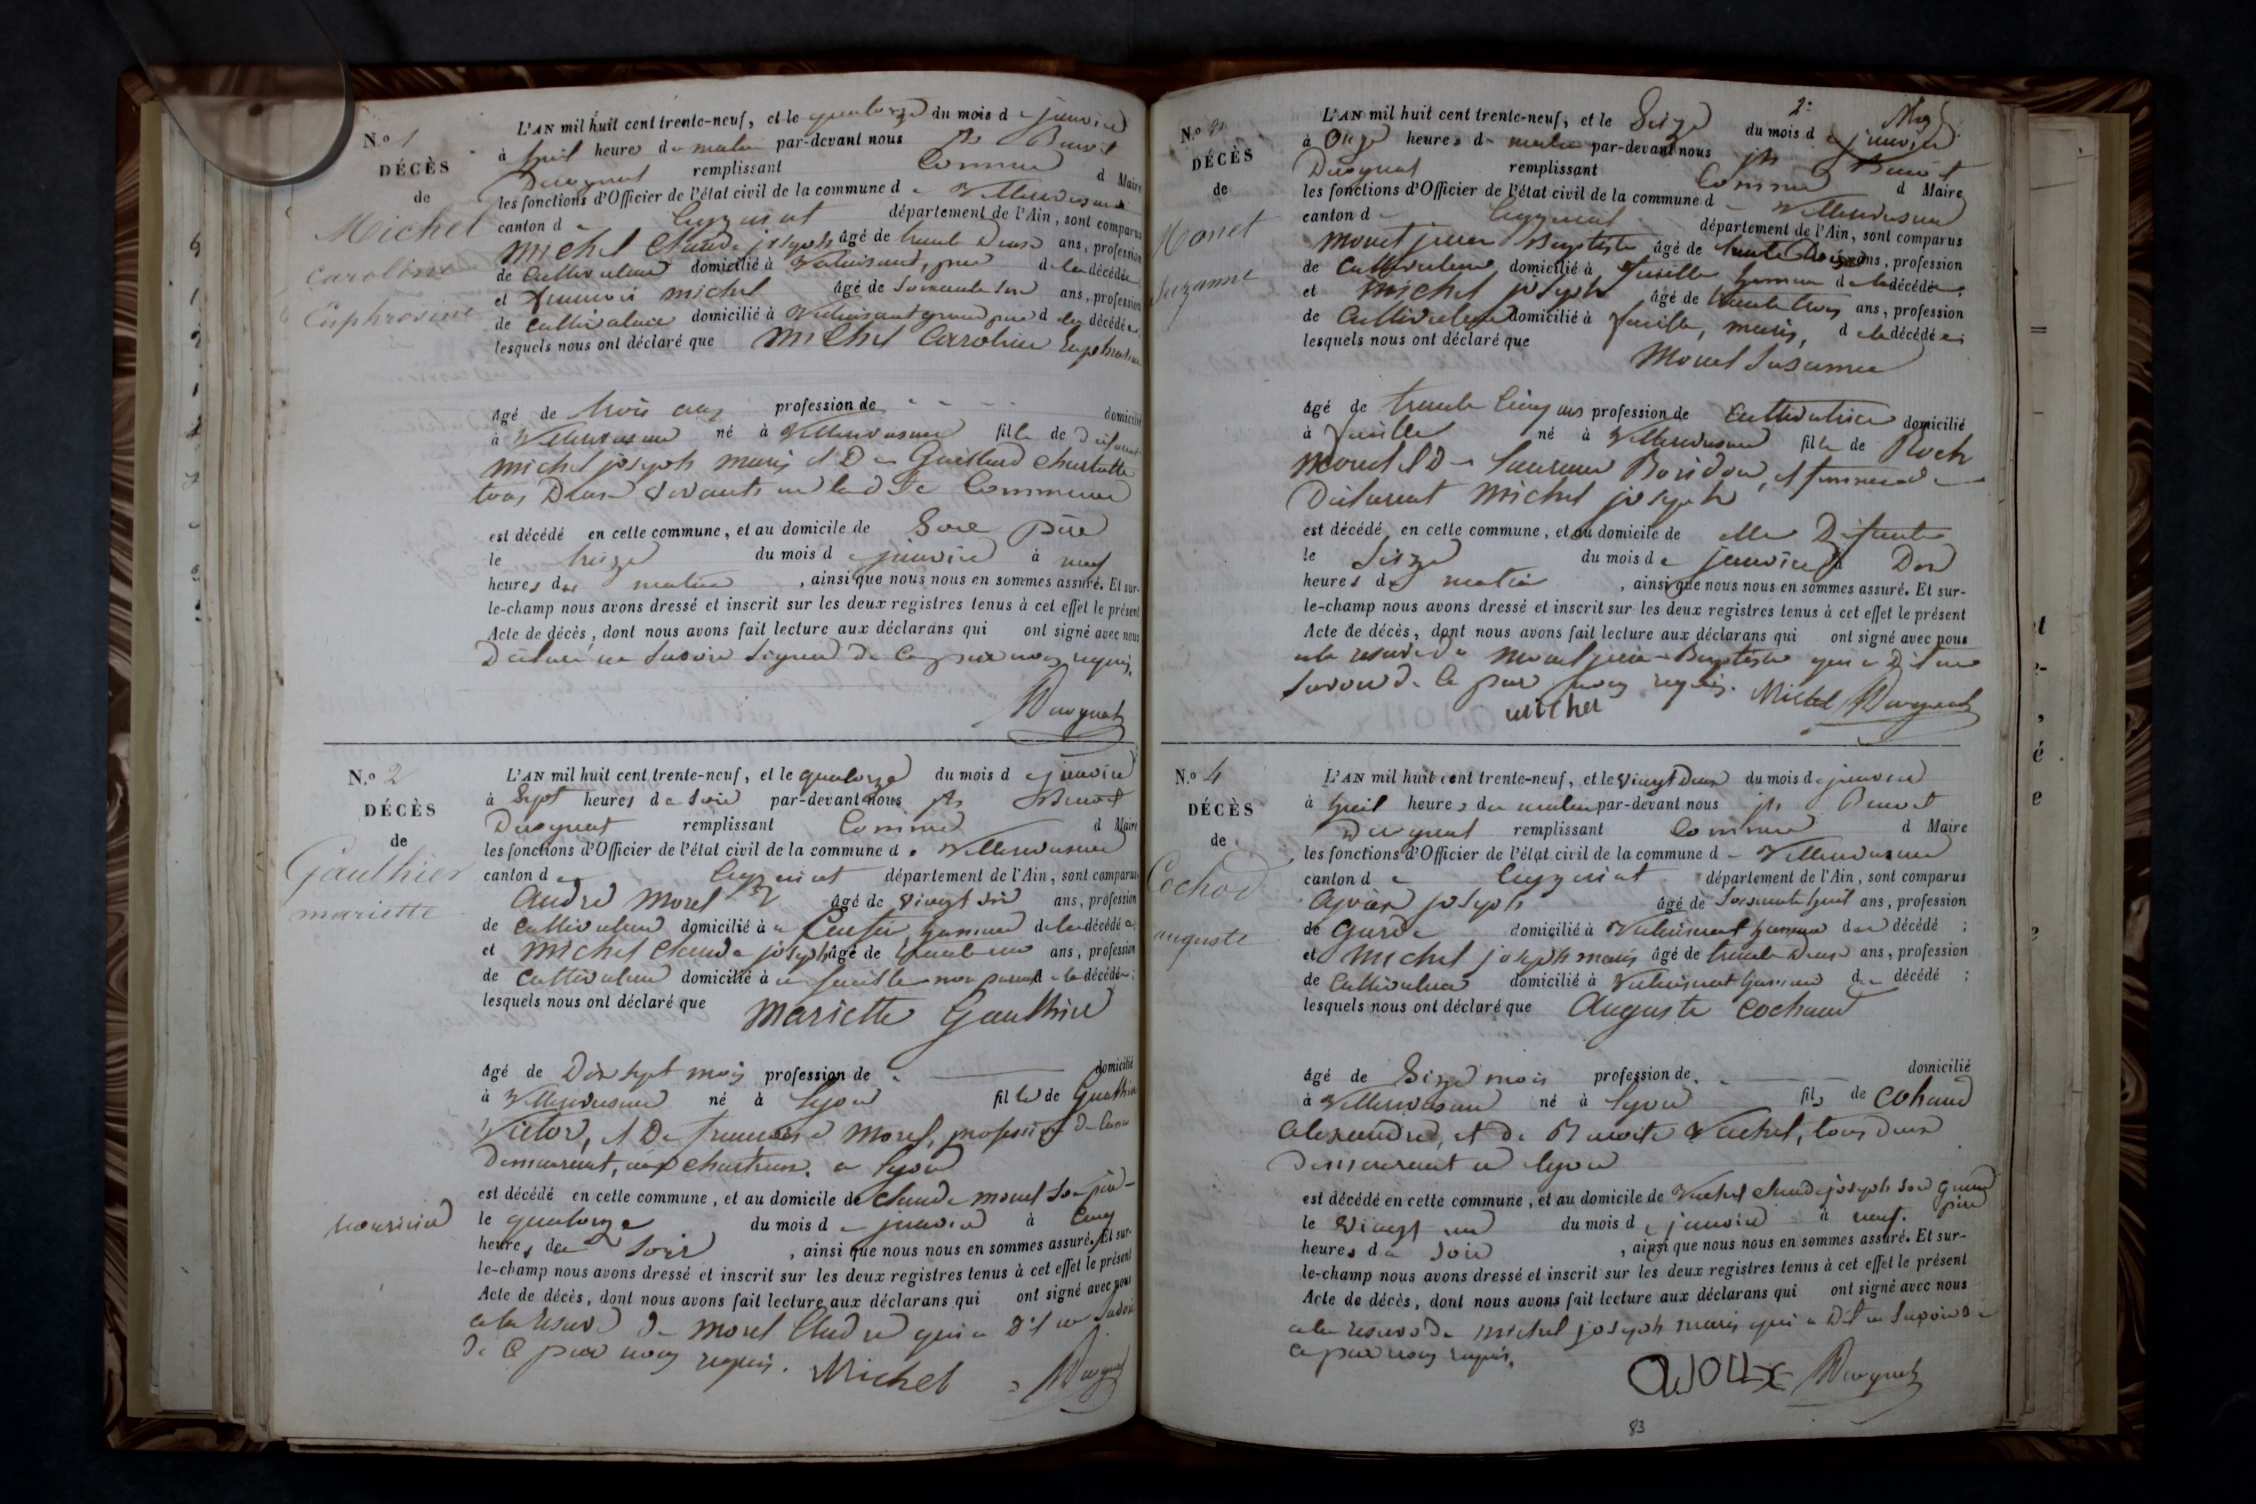 N.o 1
DÉCÈS
de
Michel
Caroline
Euphrosine
L'AN mil huit cent trente-neuf, et le quatorze du mois de janvier
à huit heures du matin par-devant nous Jh Benoit
Ducognat remplissant Comme d Maire
les fonctions d'Officier de l'état civil de la commune de Villereversure
canton de Ceyzériat département de l'Ain, sont comparus
Michel Claude joseph âgé de trente Deux ans, profession
de Cultivateur domicilié à Valuisant, père de la décédée
et françois michel âgé de Soixante ans, profession
de Cultivateur domicilié à Valuisant grand père de la décédée
lesquels nous ont déclaré que Michel Caroline Euphrosine
âgé de trois ans profession de domicilié
à Villereversure né à Villereversure fille de Déclarant
michel joseph marie et De Gaillard Charlotte
tous Deux vivants en lad. te Commune
est décédé en cette commune, et au domicile de Son père
le treize du mois de janvier à neuf
heures du matin, ainsi que nous nous en sommes assuré. Et sur-
le-champ nous avons dressé et inscrit sur les deux registres tenus à cet effet le présent
Acte de décès, dont nous avons fait lecture aux déclarans qui ont signé avec nous
Déclaré ne Savoir Signer De Ce par nous requis.
Ducognat
N.o 2
DÉCÈS
de
Gauthier
mariette
L'AN mil huit cent trente-neuf, et le quatorze du mois de janvier
à Sept heures de Soir par-devant nous Jh Benoit
Ducognat remplissant Comme d Maire
les fonctions d'Officier de l'état civil de la commune de Villereversure
canton de Ceyzériat département de l'Ain, sont comparus
André Morel âgé de vingt Six ans, profession
de Cultivateur domicilié à domicilié de la décédée
et Michel Claude joseph âgé de trente ans, profession
de Cultivateur domicilié à non parent de la décédée
lesquels nous ont déclaré que Mariette Gauthier
âgé de Dix Sept mois profession de domicilié
à Villereversure né à Lyon fille de Gauthier
Victor, et De françoise Morel, profession De
Demeurant, aux Chartreux à Lyon
est décédé en cette commune, et au domicile de Claude morel Son
nourricier
le quatorze du mois de janvier à Cinq
heures de Soir, ainsi que nous nous en sommes assuré. Et sur-
le-champ nous avons dressé et inscrit sur les deux registres tenus à cet effet le présent
Acte de décès, dont nous avons fait lecture aux déclarans qui ont signé avec nous
a la réserve De Morel André qui a Dit ne Savoir
De Ce par nous requis. Michel Ducognat
2e
N.o 3
DÉCÈS
de
Monet
Suzanne
L'AN mil huit cent trente-neuf, et le Seize du mois de janvier
à Onze heures du matin par-devant nous Jh Benoit
Ducognat remplissant Comme d Maire
les fonctions d'Officier de l'état civil de la commune de Villereversure
canton de Ceyzériat département de l'Ain, sont comparus
Monet jean Baptiste âgé de trente ans, profession
de Cultivateur domicilié à de la décédée;
et Michel joseph âgé de trente trois ans, profession
de Cultivateur domicilié à mari, de la décédée;
lesquels nous ont déclaré que
Monet Susanne
âgé de trente Cinq ans profession de Cultivatrice domicilié
à né à Villereversure fille de Roch
Monet et De Laurence, et femme de
Déclarant Michel joseph
est décédé en cette commune, et au domicile de elle Défunte
le Seize du mois de janvier à Deux
heures du matin, ainsi que nous nous en sommes assuré. Et sur-
le-champ nous avons dressé et inscrit sur les deux registres tenus à cet effet le présent
Acte de décès, dont nous avons fait lecture aux déclarans qui ont signé avec nous
a la réserve De Monet jean Baptiste qui a Dit ne
Savoir De Ce par nous requis. Michel Ducognat
michel
N.o 4
DÉCÈS
de
Cochod
auguste
L'AN mil huit cent trente-neuf, et le vingt Deux du mois de janvier
à huit heures du matin par-devant nous jh Benoit
Ducognat remplissant Comme d Maire
les fonctions d'Officier de l'état civil de la commune de Villereversure
canton de Ceyzériat département de l'Ain, sont comparus
joseph âgé de Soixante huit ans, profession
de Garde domicilié à Valuisant du décédé;
et Michel joseph marie âgé de trente Deux ans, profession
de Cultivateur domicilié à Valuisant du décédé;
lesquels nous ont déclaré que Auguste Cochaud
âgé de Seize mois profession de domicilié
à Villereversure né à Lyon fils de Cohaud
alexandre, et de Benoite Vuchet, tous deux
Demeurant a Lyon
est décédé en cette commune, et au domicile de Vuchet Claude joseph Son Grand
père
le Vingt un du mois de janvier à neuf
heures du Soir, ainsi que nous nous en sommes assuré. Et sur-
le-champ nous avons dressé et inscrit sur les deux registres tenus à cet effet le présent
Acte de décès, dont nous avons fait lecture aux déclarans qui ont signé avec nous
a la réserve De michel joseph marie qui a Dit ne Savoir De
Ce par nous requis.
Ducognat
83